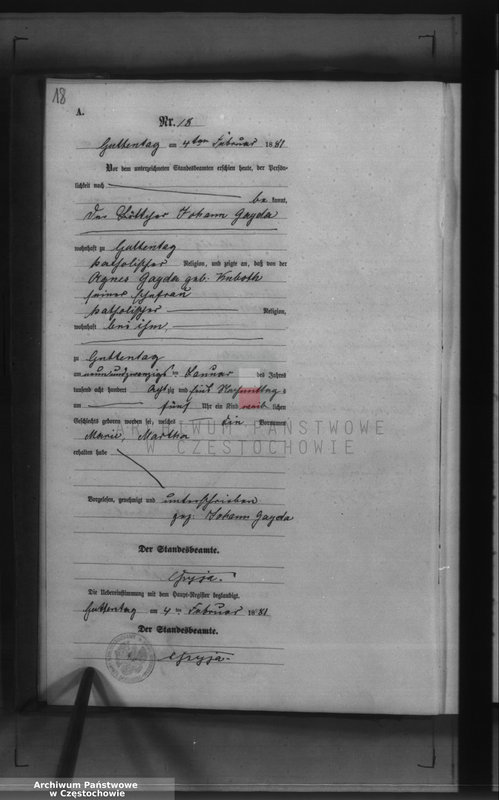 18
A.
Nr. 18
Guttentag am 4ten Februar 1881
Vor dem unterzeichneten Standesbeamten erschien heute, der Persön-
lichkeit nach
be kannt,
der Böttcher Johann Gayda
wohnhaft zu Guttentag
katholischer Religion, und zeigte an, daß von der
Agnes Gayda geb. Kuboth
seiner Ehefrau
katholischer Religion,
wohnhaft bei ihm,
zu Guttentag
am neunundzwanzigsten Januar des Jahres
tausend acht hundert achtzig und eins Nachmittag s
um fünf Uhr ein Kind weib lichen
Geschlechts geboren worden sei, welches die Vornamen
Marie, Martha
erhalten habe
Vorgelesen, genehmigt und unterschrieben
gez. Johann Gayda
Der Standesbeamte.
Die Uebereinstimmung mit dem Haupt-Register beglaubigt.
Guttentag am 4ten Februar 1881
Der Standesbeamte.
ARCHIWUM PAŃSTWOWE
W CZĘSTOCHOWIE
Archiwum Państwowe
w Częstochowie